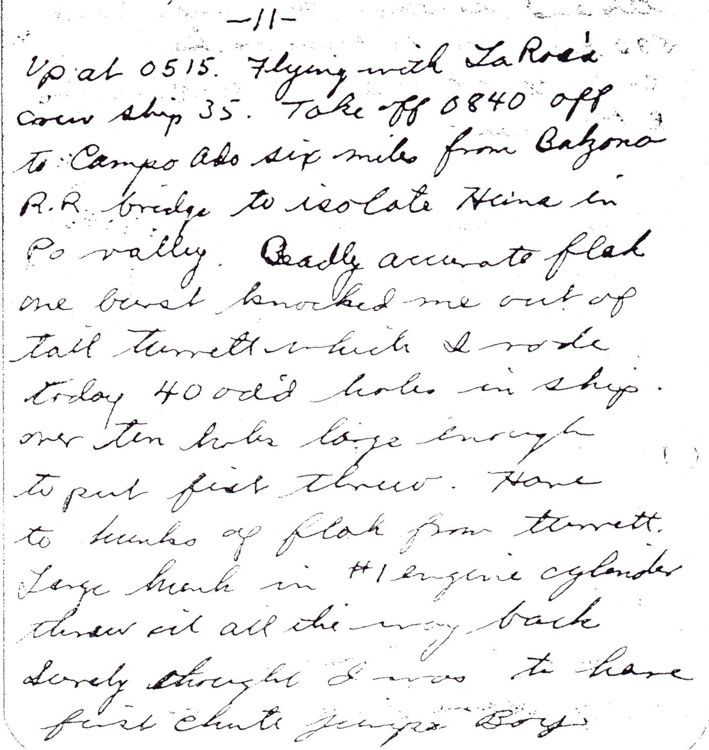 -11-
Up at 0515. Flying with LaRose's
crew ship 35. Take off 0840 off
to Campo Ado six miles from Balzono
R.R. bridge to isolate Heine in
Po valley. Deadly accurate flak
one burst knocked me out of
tail turrett which I rode
today 40 odd holes in ship.
over ten holes large enough
to put fist threw. Have
to hunks of flak from turrett.
Large hunk in #1 engine cylender
threw oil all the way back
Surely thought I was to have
first chute jump. Boy